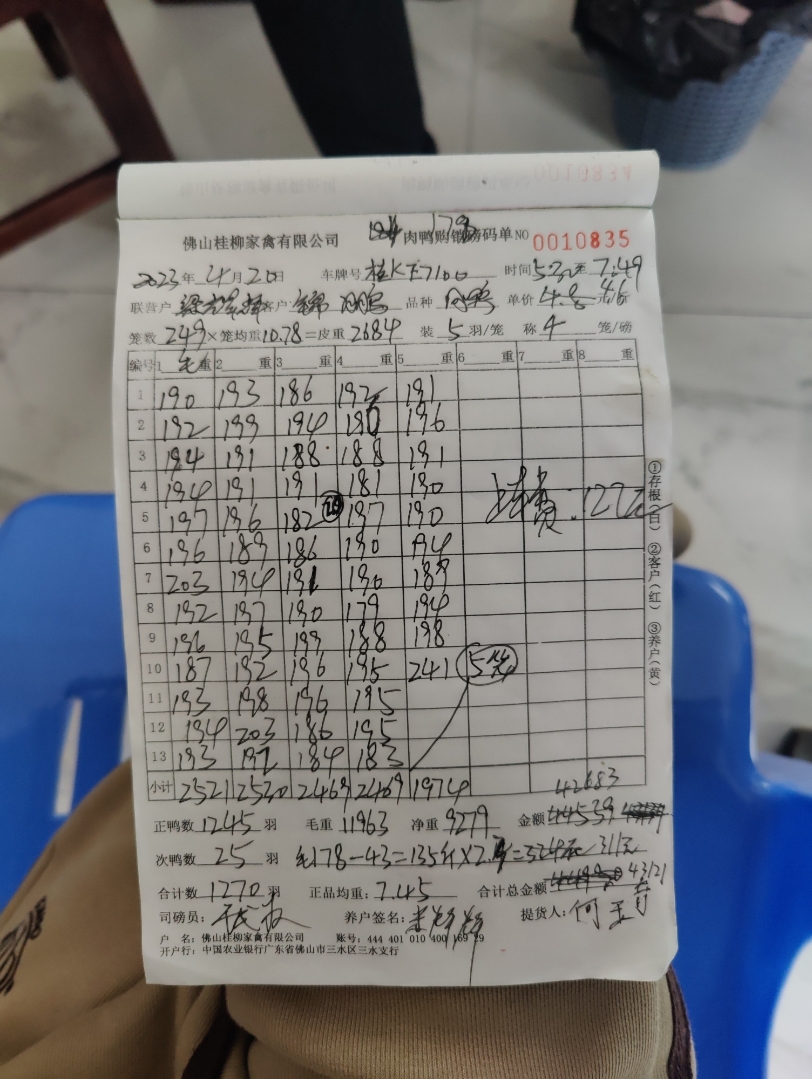 0010834
佛山桂柳家禽有限公司 肉鸭购销磅码单 NO 0010835
2023年 4月20日 车牌号 桂KF7100 时间 5:30至7:49
联营户 客户 品种 肉鸭 单价 4.8 4.6 元/斤
笼数 249 ×笼均重 10.78 =皮重 2684 装 5 羽/笼 称 4 笼/磅
编号 1 毛重 2 重 3 重 4 重 5 重 6 重 7 重 8 重
1 190 193 186 192 191
2 192 199 194 190 196
3 194 191 188 188 191
4 194 191 191 181 190
5 197 196 182 197 190 费:127元
6 196 189 186 190 194
7 203 194 191 190 189
8 192 197 190 179 194
9 196 195 199 188 198
10 187 192 196 195 241 5笼
11 193 198 196 195
12 194 203 186 195
13 193 192 184 183
小计 2521 2530 2469 2469 1974
42683
正鸭数 1245 羽 毛重 11963 净重 9279 金额 44539
次鸭数 25 羽 毛178-43=135斤×2. =324元 311元
合计数 1270 羽 正品均重: 7.45 合计总金额 43121
司磅员: 养户签名: 提货人: 何
户 名: 佛山桂柳家禽有限公司 账号: 444 401 010 400 169 29
开户行: 中国农业银行广东省佛山市三水区三水支行
①存根(白) ②客户(红) ③养户(黄)